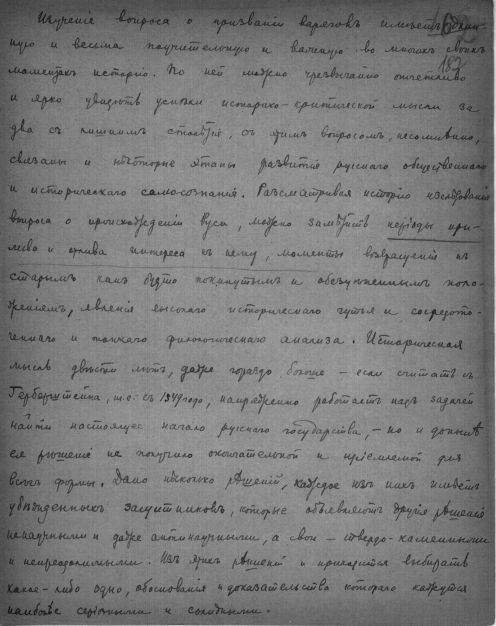 Изученіе вопроса о призваніи варяговъ имѣетъ
ную и весьма поучительную и важную во многихъ своихъ
187
моментахъ исторію. По ней можно чрезвычайно отчетливо
и ярко увидѣть успѣхи историко-критической мысли за
два съ лишнимъ столѣтія, съ этимъ вопросомъ, несомнѣнно,
связаны и нѣкоторые этапы развитія русскаго общественнаго
и историческаго самосознанія. Разсматривая исторію изслѣдованія
вопроса о происхожденіи Руси, можно замѣтить періоды при-
лива и отлива интереса къ нему, моменты возвращенія къ
старымъ какъ будто покинутымъ и обезцѣненнымъ поло-
женіямъ, явленія высокаго историческаго чутья и сосредото-
ченнаго и тонкаго филологическаго анализа. Историческая
мысль двѣсти лѣтъ, даже гораздо больше – если считать съ
Герберштейна, т.е. съ 1549 года, напряженно работаетъ надъ задачей
найти настоящее начало русскаго государства, – но и донынѣ
ея рѣшеніе не получило окончательной и пріемлемой для
всѣхъ формы. Дано нѣсколько рѣшеній, каждое изъ нихъ имѣетъ
убѣжденныхъ защитниковъ, которые объявляютъ другія рѣшенія
ненаучными и даже антинаучными, а свои – твердо-каменными
и непреодолимыми. Изъ этихъ рѣшеній и приходится выбирать
какое-либо одно, обоснованія и доказательства котораго кажутся
наиболѣе серіозными и солидными.